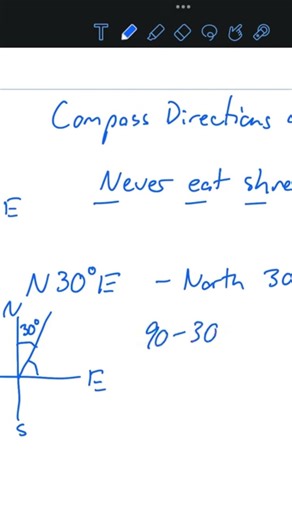 Compass Directions
Never eat
E
N30°E - North 30
N
30°
90-30
E
S